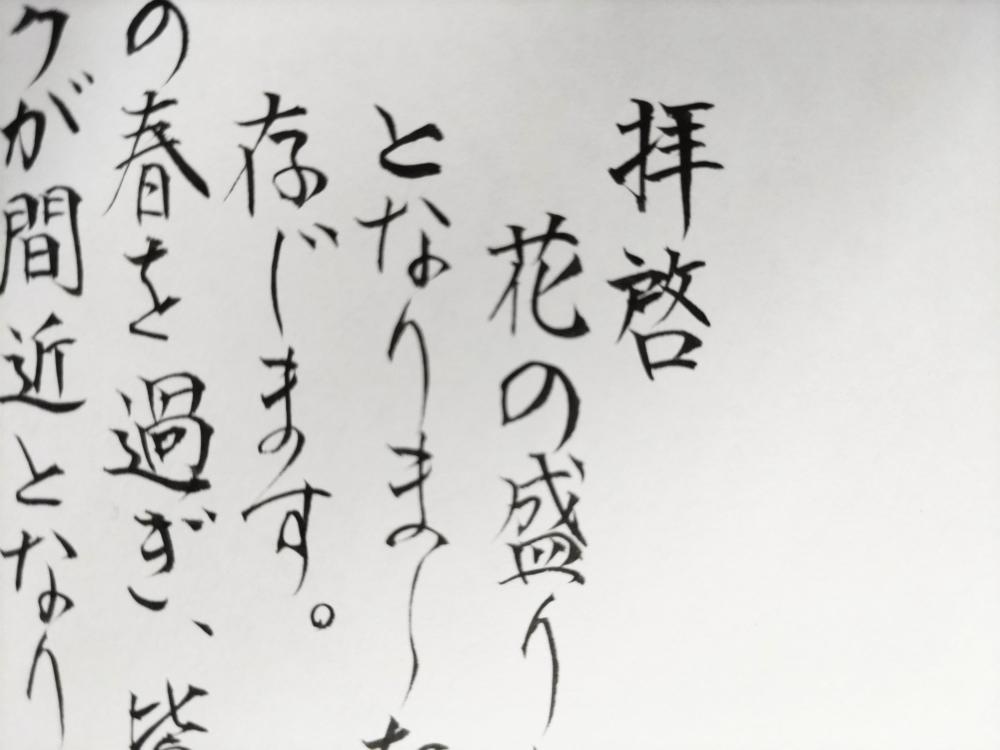 拝啓
花の盛り
となりました
存じます。
の春を過ぎ、皆
クが間近となり